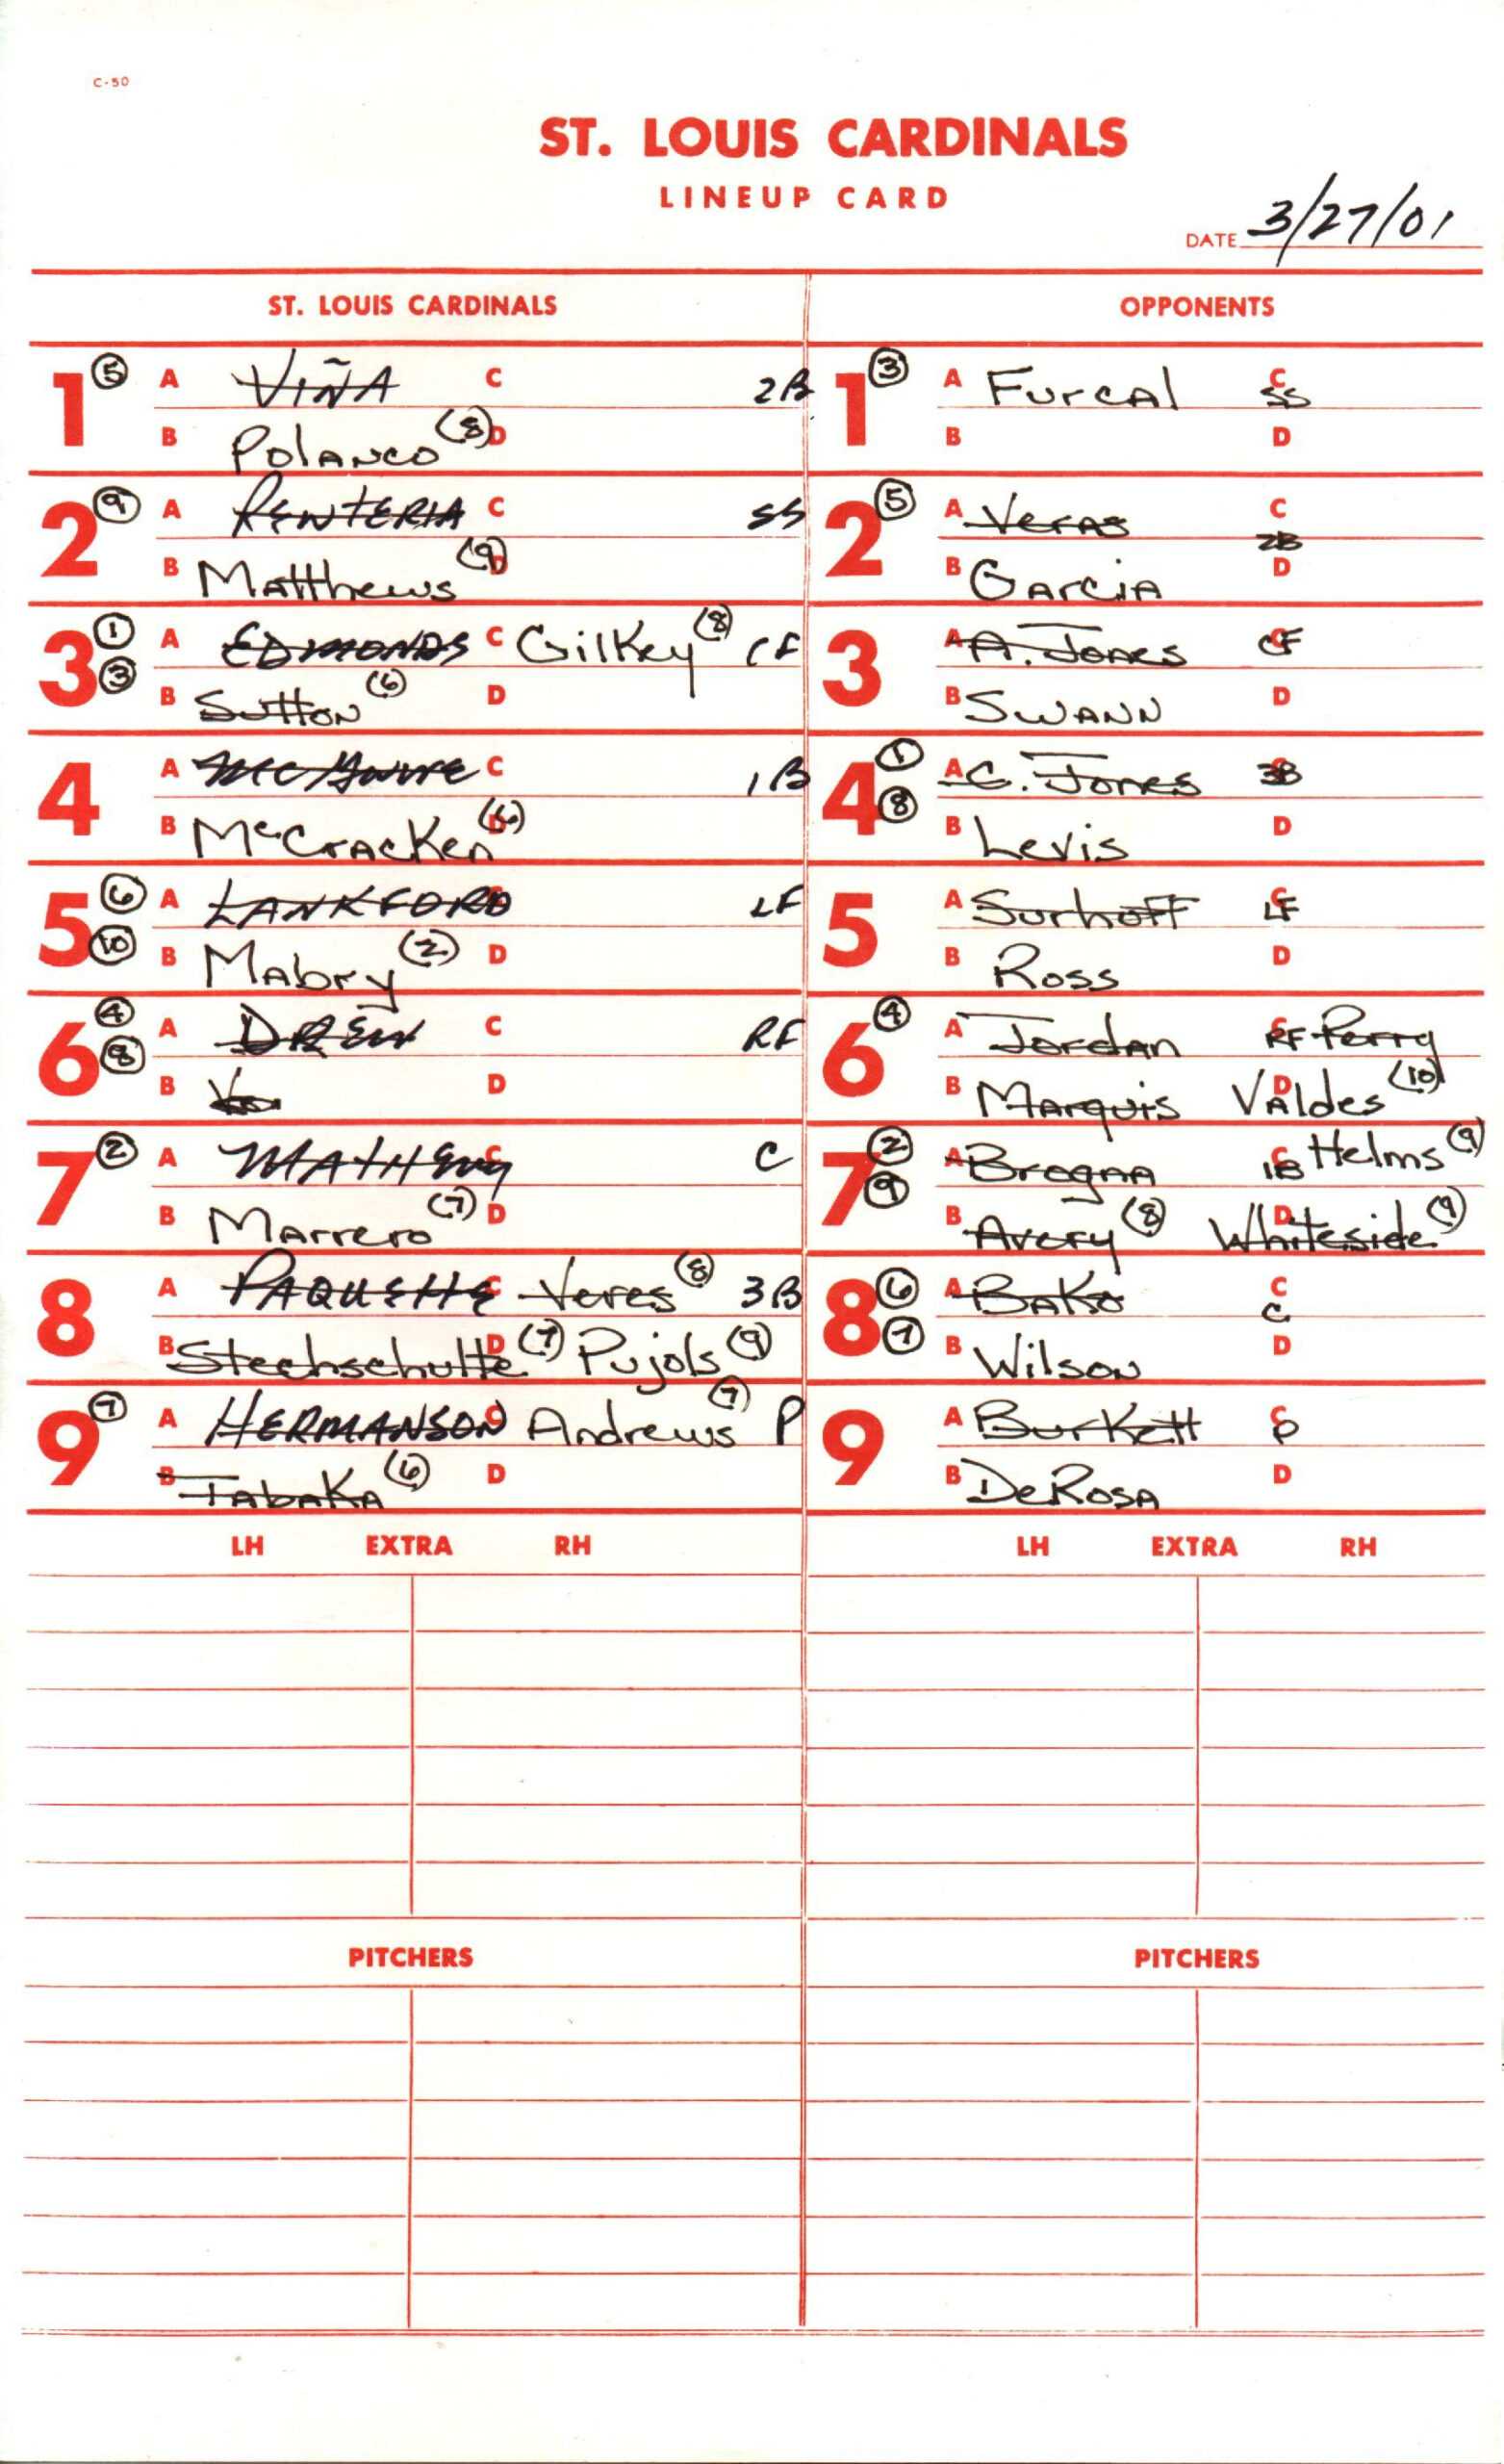 C-50
ST. LOUIS CARDINALS
LINEUP CARD
DATE 3/27/01
ST. LOUIS CARDINALS OPPONENTS
1 5 A VIÑA C 2B 1 3 A Furcal C SS
B Polanco (8) D B D
2 9 A RENTERIA C SS 2 5 A Veras C 2B
B Matthews (9) B Garcia D
3 1 A EDMONDS C Gilkey (8) CF 3 A A. Jones C CF
3 B Sutton (6) D B Swann D
4 A McGwire C 1B 4 1 A C. Jones 3B
B McCracken (6) 8 B Levis D
5 6 A LANKFORD LF 5 A Surhoff C LF
10 B Mabry (2) D B Ross D
6 4 A DREW C RF 6 4 A Jordan C RF Perry
8 B D B Marquis Valdes D (10)
7 2 A MATHENY C C 7 2 A Brogna C 1B Helms (9)
B Marrero (7) D 9 B Avery (8) D Whiteside (9)
8 A PAQUETTE C Veres (8) 3B 8 6 A Bako C C
B Stechschulte D (7) Pujols (9) 7 B Wilson D
9 7 A HERMANSON C Andrews (7) P 9 A Burkett C P
B Tabaka (6) D B DeRosa D
LH EXTRA RH LH EXTRA RH
PITCHERS PITCHERS